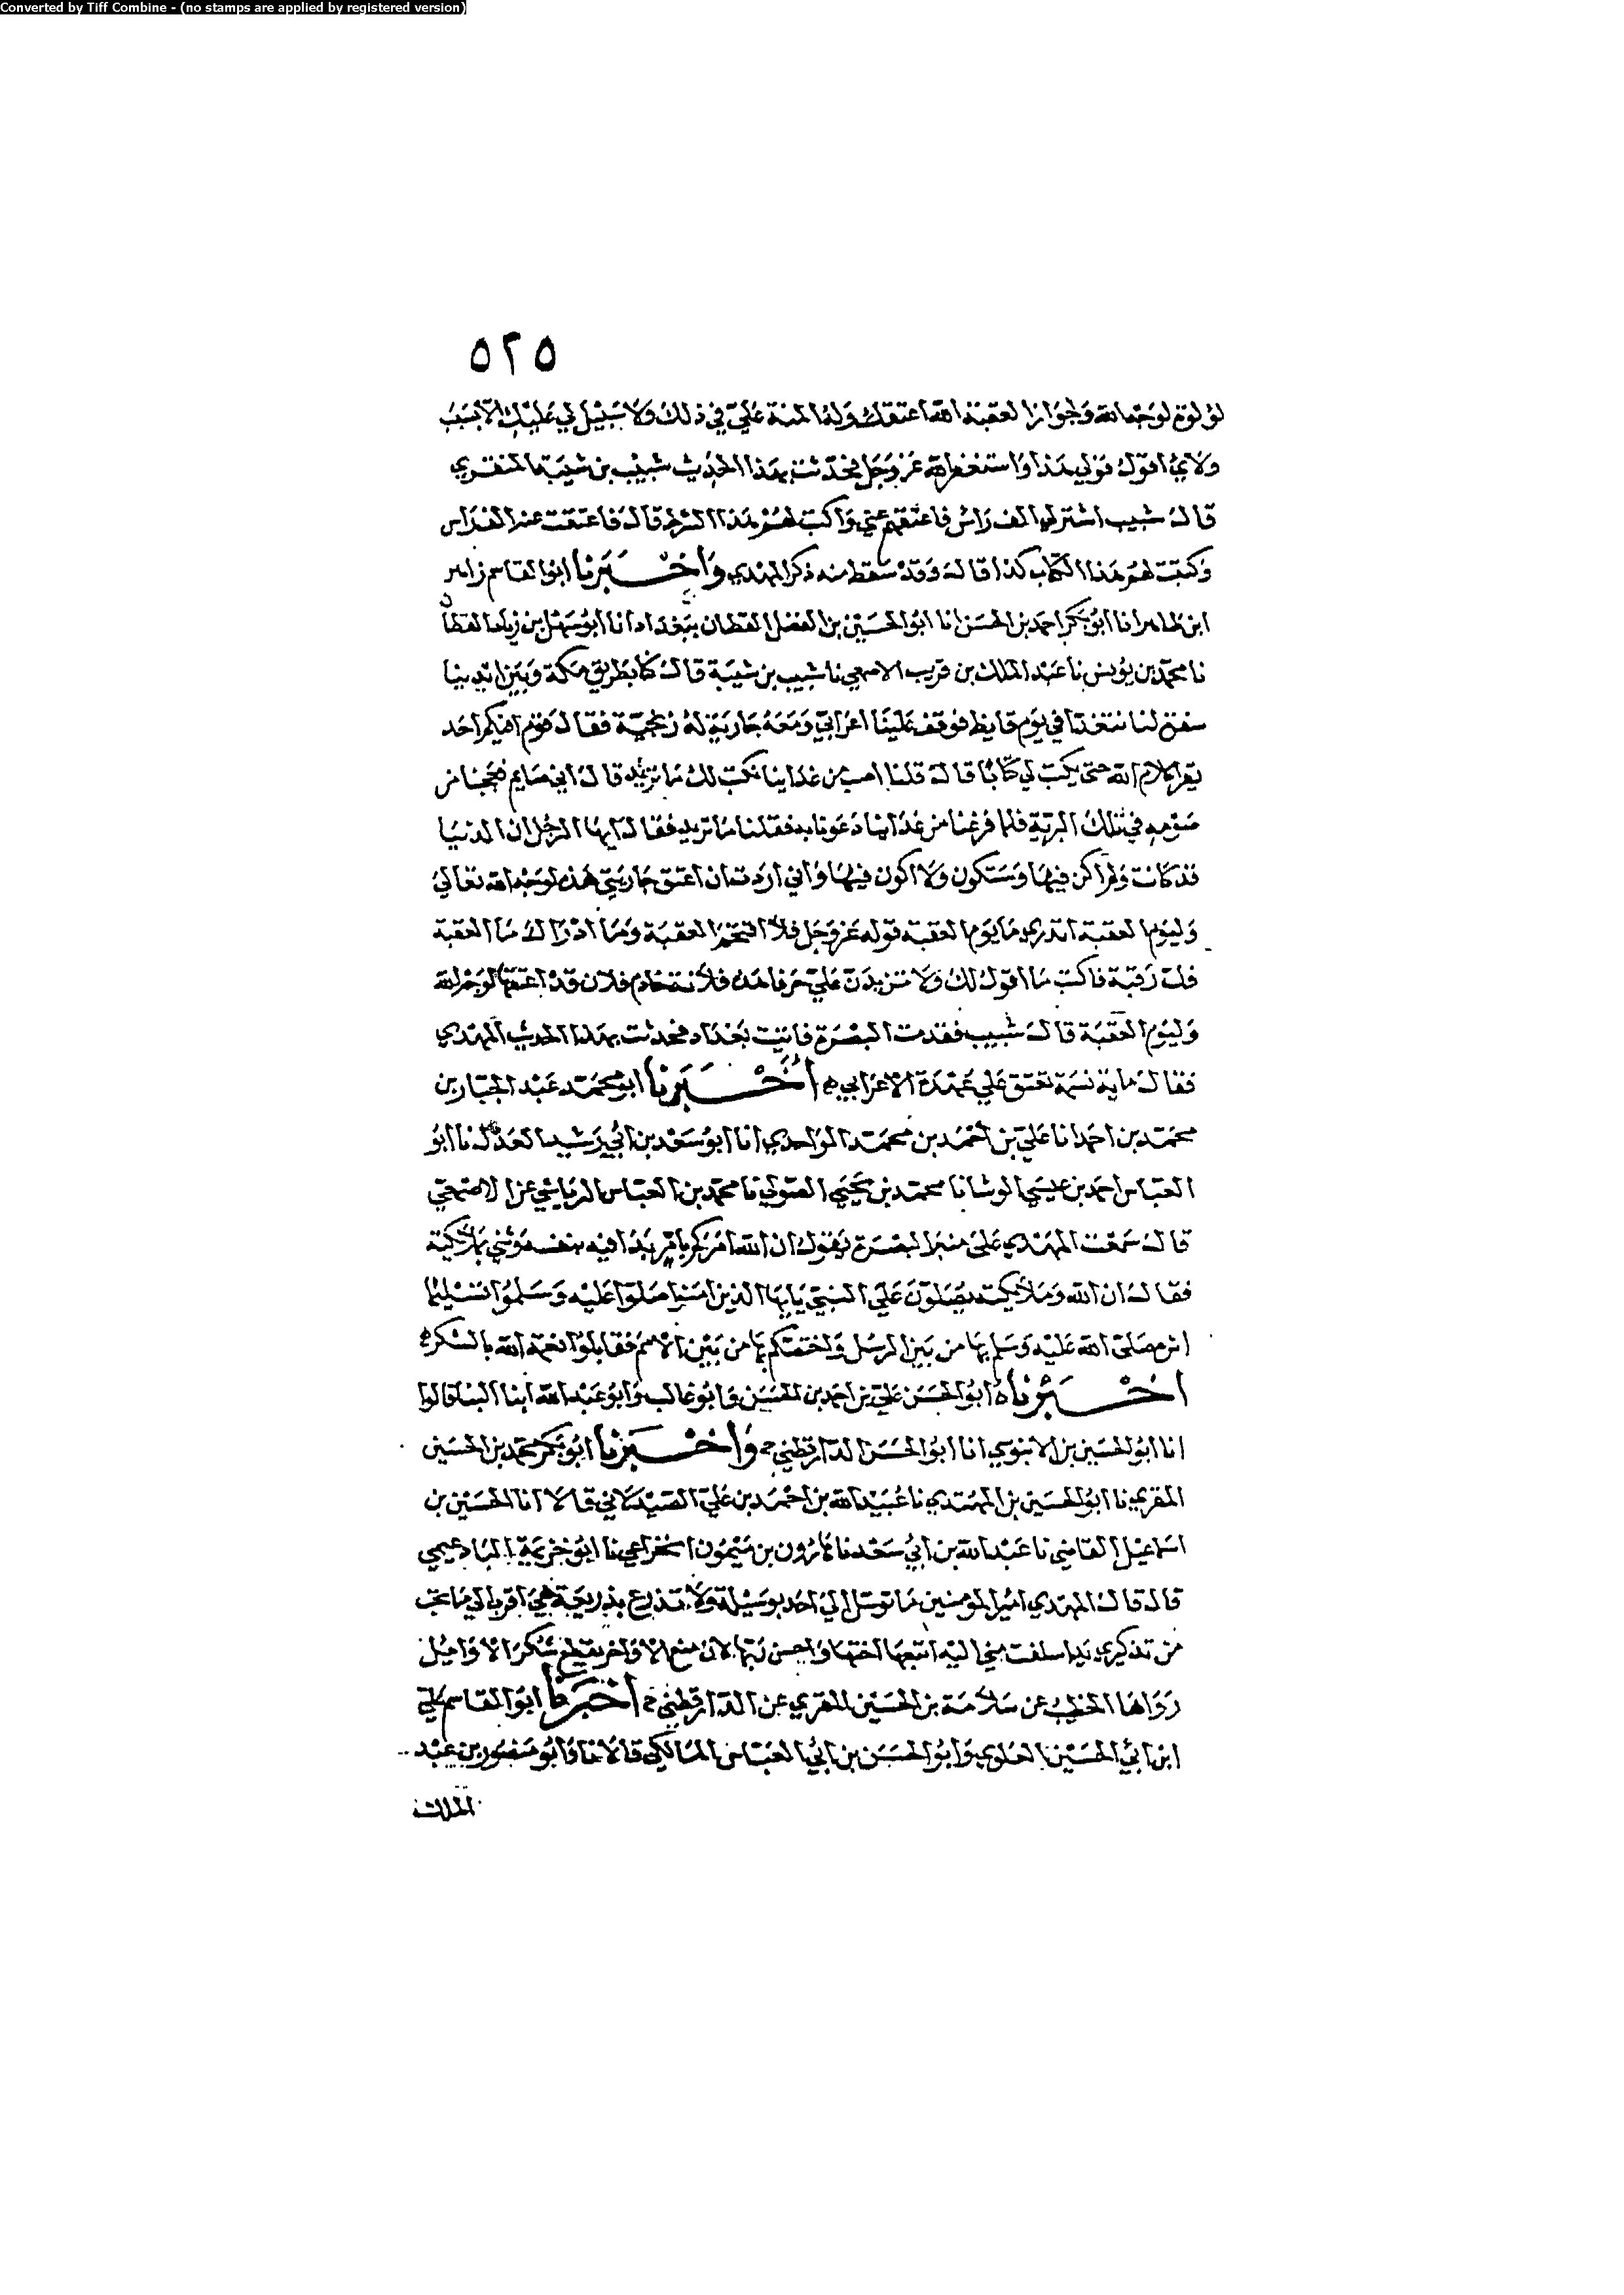 Converted by Tiff Combine - (no stamps are applied by registered version)
٥٢٥
لؤلؤة لوجه الله ولجواز العقبة الله اعتقك وله المنة علي في ذلك ولا سبيل لي عليك الا بسبب
ولاي اقول قولي هذا واستغفر الله عز وجل فحدثت بهذا الحديث شبيب بن شيبة المنقري
قال شبيب اشتر لي الف راس فاعتقهم عني واكتب لهم هذا الشرط قال فاعتقت عنه الف راس
وكتبت لهم هذا الكتاب كذا قال وقد سقط منه ذكر المهدي واخبرنا ابو القاسم زاهر
ابن طاهر انا ابو بكر احمد بن الحسن انا ابو الحسين بن الفضل القطان ببغداد انا ابو سهل بن زياد القطان
نا محمد بن يونس نا عبد الملك بن قريب الاصمعي نا شبيب بن شيبة قال كنا بطريق مكة وبين ايدينا
سفرة لنا نتغدا في يوم قايظ فوقف علينا اعرابي ومعه جارية له زنجية فقال يا قوم افيكم احد
يقرا كلام الله حتى يكتب لي كتابا قال قلنا اصب من غداينا نكتب لك ما تريد قال اني صايم فعجبنا من
صومه في تلك البرية فلما فرغنا من غداينا دعونا به فقلنا ما تريد فقال ايها الرجل ان الدنيا
قد كانت ولم اكن فيها وستكون ولا اكون فيها واني اردت ان اعتق جاريتي هذه لوجه الله تعالى
وليوم العقبة اتدري ما يوم العقبة قوله عز وجل فلا اقتحم العقبة وما ادراك ما العقبة
فك رقبة فاكتب ما اقول لك ولا تزيدن علي حرفا هذه فلانة خادم فلان قد اعتقها لوجه الله
وليوم العقبة قال شبيب فقدمت البصرة فاتيت بغداد فحدثت بهذا الحديث المهدي
فقال ماية نسمة تعتق علي عهدة الاعرابي اخبرنا ابو محمد عبد الجبار بن
محمد بن احمد انا علي بن احمد بن محمد الواحدي انا ابو سعد بن ابي رشيد العدل نا ابو
العباس احمد بن عيسى الوشا نا محمد بن يحيى الصولي نا محمد بن العباس الرياشي عن الاصمعي
قال سمعت المهدي على منبر البصرة يقول ان الله امركم بامر بدا فيه بنفسه وثنى بملائكته
فقال ان الله وملايكته يصلون على النبي يايها الذين امنوا صلوا عليه وسلموا تسليما
اثره صلى الله عليه وسلم بها من بين الرسل واختصكم بها من بين الامم فقابلوا نعمة الله بالشكر
اخبرنا ابو الحسن علي بن احمد بن الحسن وابو غالب وابو عبد الله ابنا البنا قالوا
انا ابو الحسين بن الابنوسي انا ابو الحسن الدارقطني ح واخبرنا ابو بكر محمد بن الحسين
المقري نا ابو الحسين بن المهتدي نا عبيد الله بن احمد بن علي الصيدلاني قالا انا الحسين بن
اسماعيل القاضي نا عبد الله بن ابي سعد نا هارون بن ميمون الخزاعي نا ابو خزيمة البادغيسي
قال قال المهدي امير المومنين ما توسل الي احد بوسيلة ولا تذرع بذريعة هي اقرب الي ما يحب
من تذكيري يدا سلفت مني اليه اتبعها اختها واحسن ربها لان منع الاواخر يقطع شكر الاوايل
رواها الخطيب عن سلامة بن الحسين المقري عن الدارقطني اخبرنا ابو القاسم علي
ابن ابي الحسين العلوي وابو الحسن بن ابي العباس المالكي قالا نا وابو منصور بن عبد
الملك